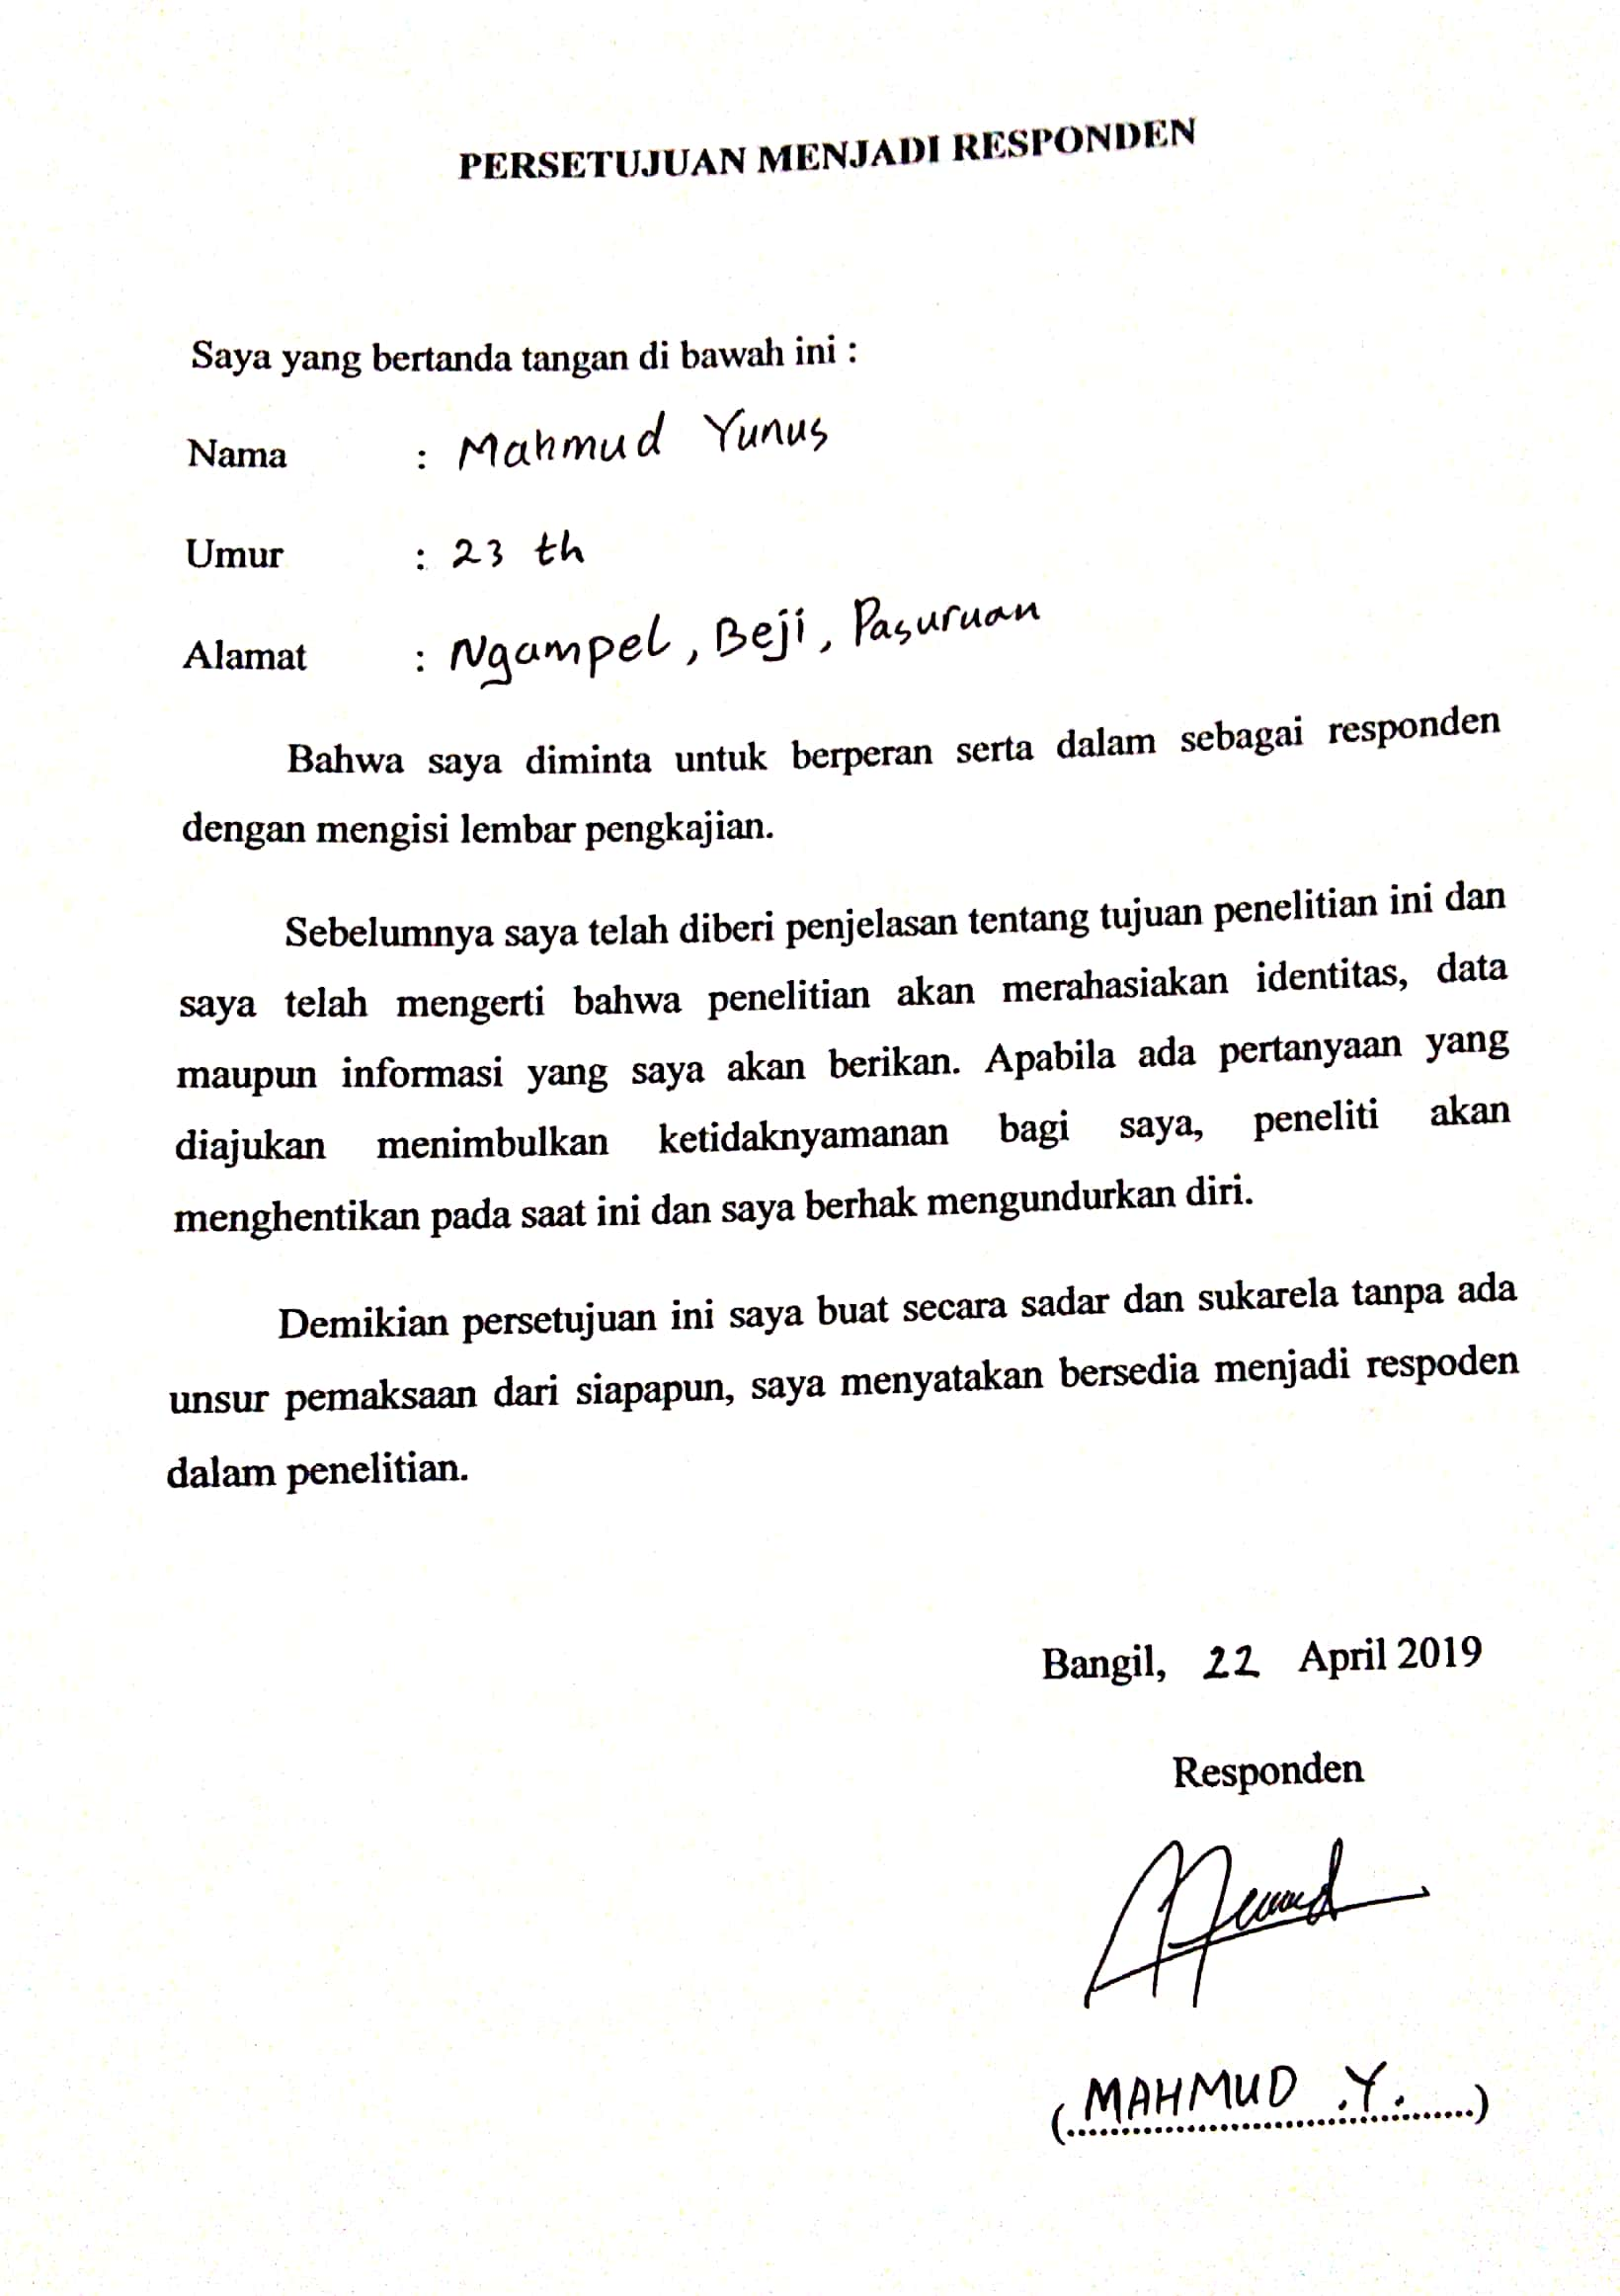 PERSETUJUAN MENJADI RESPONDEN
Saya yang bertanda tangan di bawah ini :
Nama : Mahmud Yunus
Umur : 23 th
Alamat : Ngampel, Beji, Pasuruan
Bahwa saya diminta untuk berperan serta dalam sebagai responden
dengan mengisi lembar pengkajian.
Sebelumnya saya telah diberi penjelasan tentang tujuan penelitian ini dan
saya telah mengerti bahwa penelitian akan merahasiakan identitas, data
maupun informasi yang saya akan berikan. Apabila ada pertanyaan yang
diajukan menimbulkan ketidaknyamanan bagi saya, peneliti akan
menghentikan pada saat ini dan saya berhak mengundurkan diri.
Demikian persetujuan ini saya buat secara sadar dan sukarela tanpa ada
unsur pemaksaan dari siapapun, saya menyatakan bersedia menjadi respoden
dalam penelitian.
Bangil, 22 April 2019
Responden
(MAHMUD .Y.)